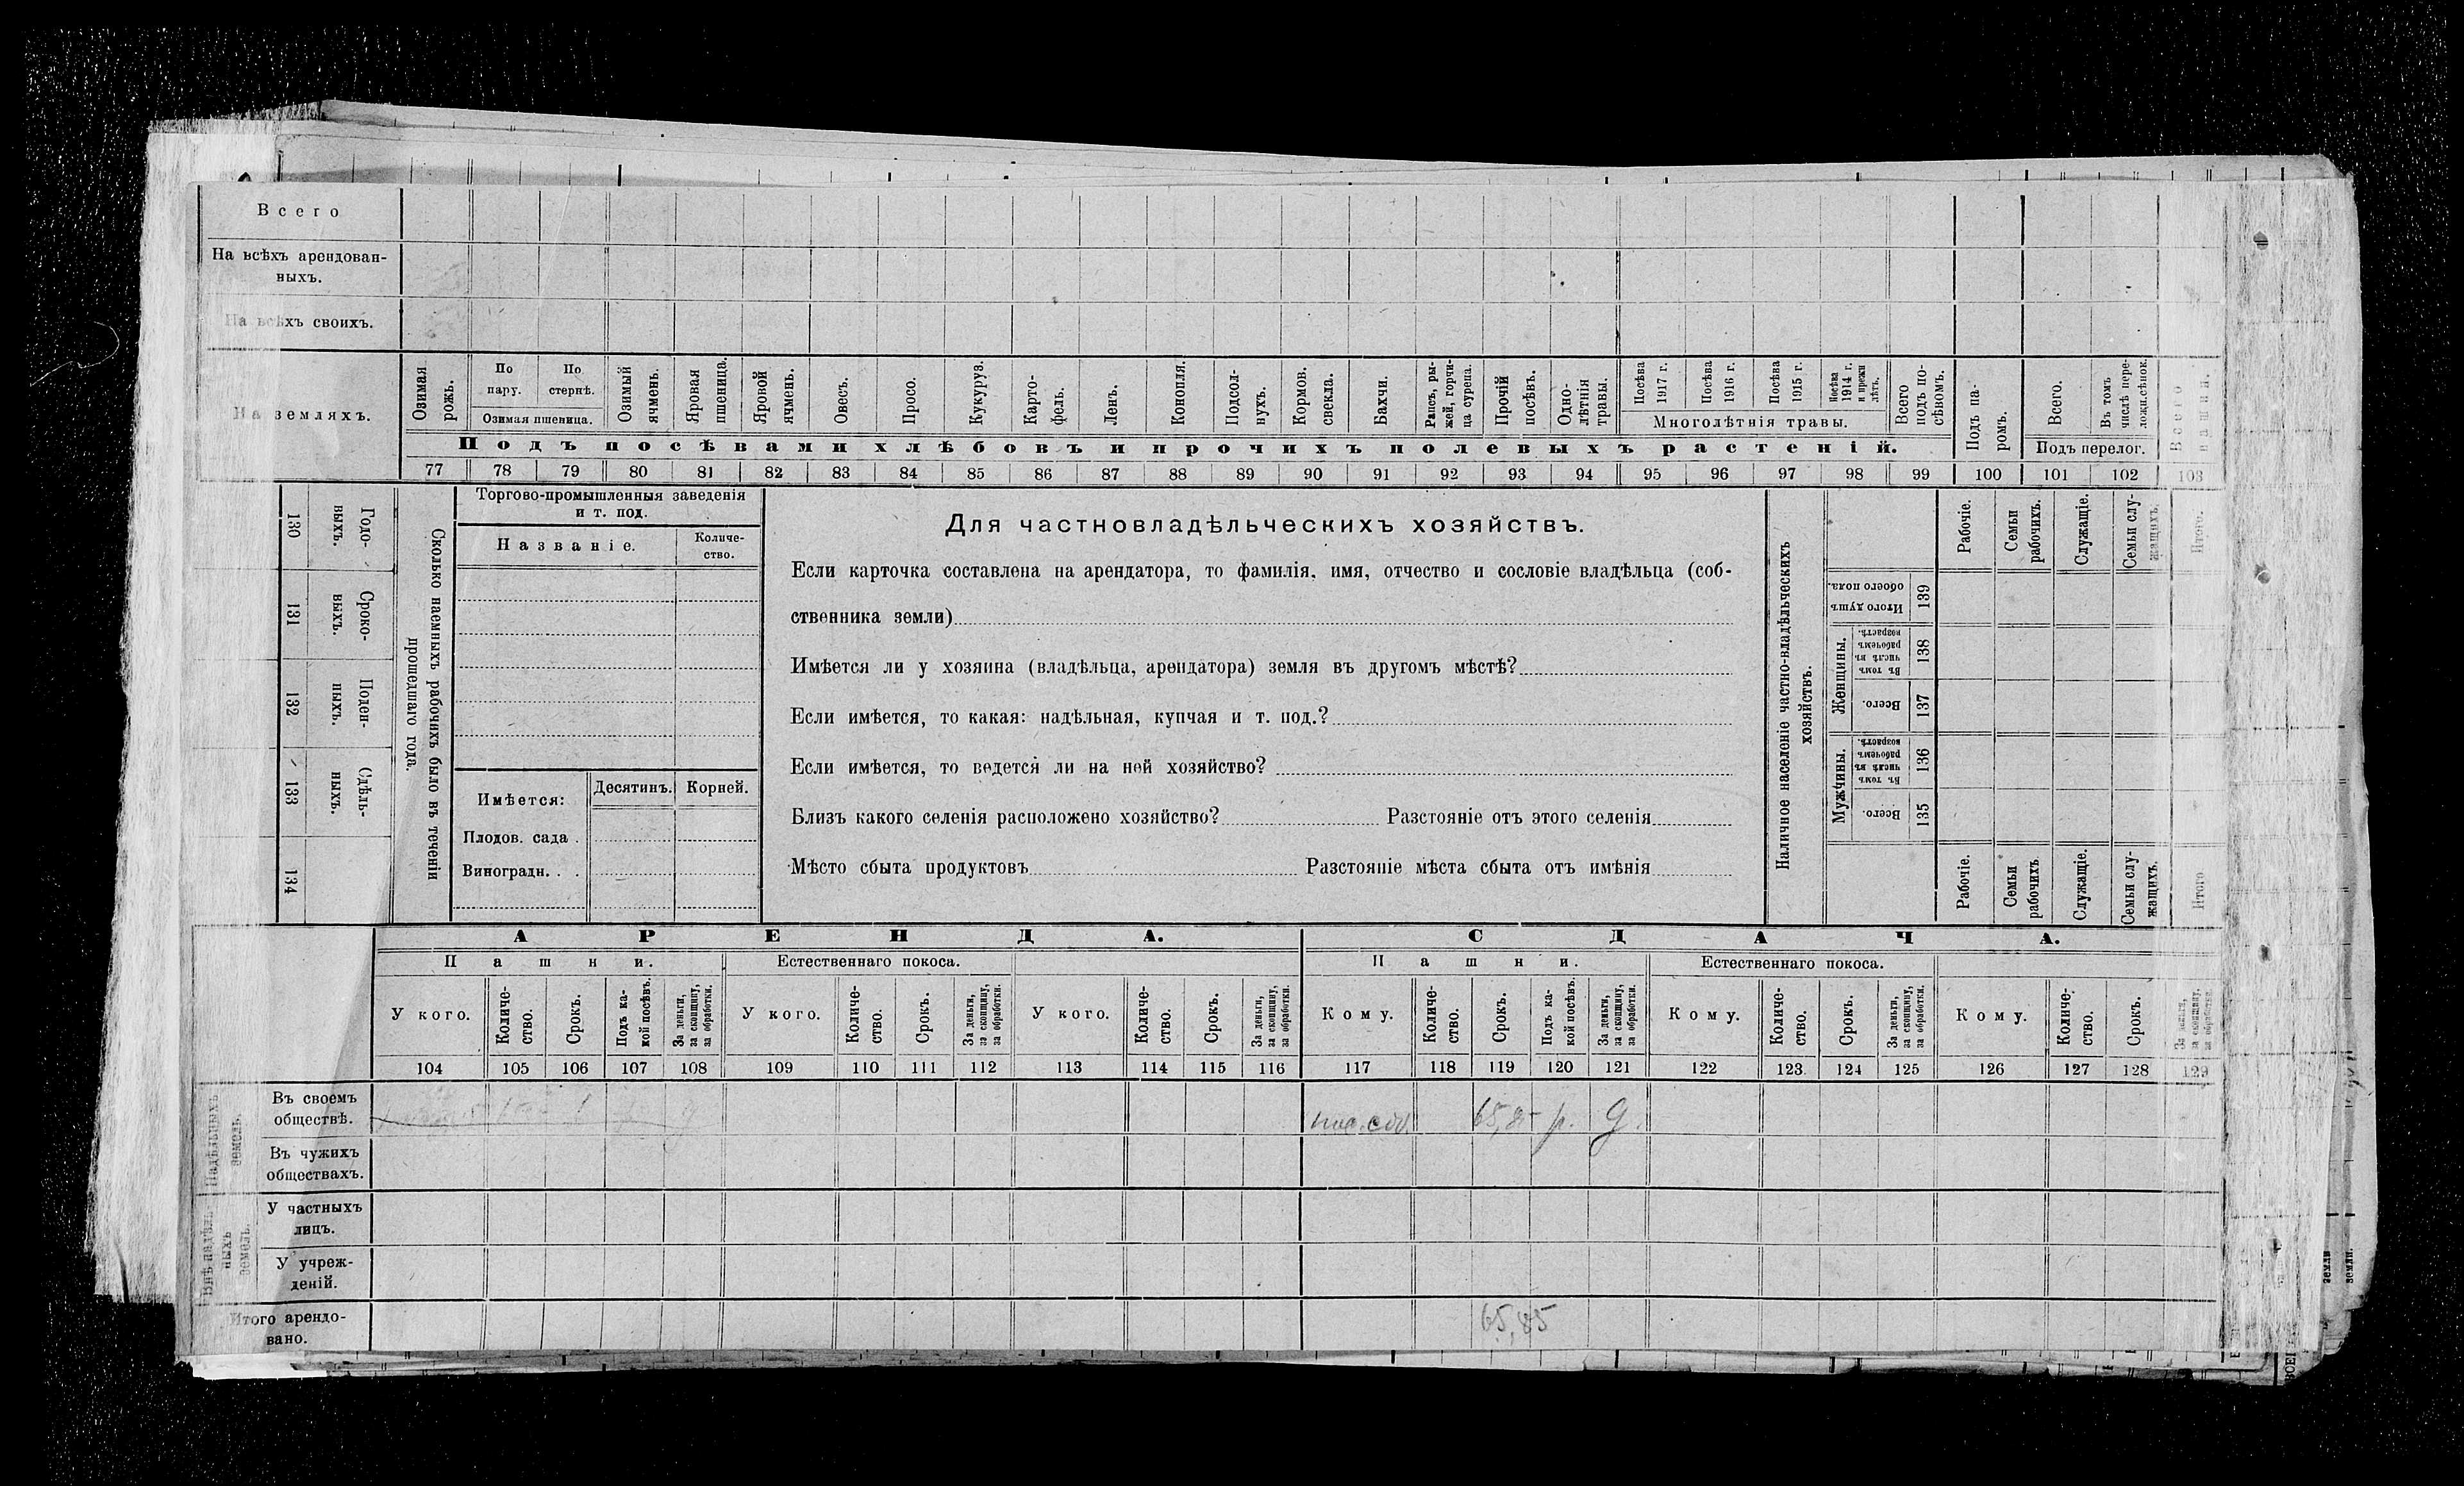 Всего
На всѣхъ арендован-
ныхъ.
На всѣхъ своихъ.
На земляхъ.
Озимая рожь.
По пару.
По стернѣ.
Озимая пшеница.
Озимый ячмень.
Яровая пшеница.
Яровой ячмень.
Овесъ.
Просо.
Кукуруз.
Карто-
фель.
Ленъ.
Конопля.
Подсол-
нухъ.
Кормов. свекла.
Бахчи.
Рапсъ, ры-
жей, горчи-
ца суреца.
Прочій посѣвъ.
Одно-
лѣтнія травы.
Посѣва 1917 г.
Посѣва 1916 г.
Посѣва 1915 г.
Посѣва 1914 г. и прежн лѣтъ.
Многолѣтнія травы.
Всего подъ по-
сѣвомъ.
Подъ па-
ромъ.
Всего.
Въ томъ числѣ пере-
ложн.сѣнок.
Подъ перелог.
Всего пашни.
Подъ посѣвами хлѣбовъ и прочихъ полевыхъ растеній.
77 78 79 80 81 82 83 84 85 86 87 88 89 90 91 92 93 94 95 96 97 98 99 100 101 102 103
130 Годо-
выхъ.
131 Сроко-
выхъ.
132 Поден-
ныхъ.
133 Сдѣль-
ныхъ.
134
Сколько наемныхъ рабочихъ было въ теченіи
прошедшаго года.
Торгово-промышленныя заведенія
и т. под.
Названіе.
Количе-
ство.
Имѣется:
Десятинъ.
Корней.
Плодов. сада .
Виноградн. . .
Для частновладѣльческихъ хозяйствъ.
Если карточка составлена на арендатора, то фамилія, имя, отчество и сословіе владѣльца (соб-
ственника земли)
Имѣется ли у хозяина (владѣльца, арендатора) земля въ другомъ мѣстѣ?
Если имѣется, то какая: надѣльная, купчая и т. под.?
Если имѣется, то ведется ли на ней хозяйство?
Близъ какого селенія расположено хозяйство? Разстояніе отъ этого селенія
Мѣсто сбыта продуктовъ Разстояніе мѣста сбыта отъ имѣнія
Наличное населеніе частно-владѣльческихъ
хозяйствъ.
Рабочіе.
Семьи рабочихъ.
Служащіе.
Семьи слу-
жащихъ.
Итого.
Итого душъ обоего пола. 139
Женщины.
Въ томъ числѣ въ рабочемъ возрастѣ. 138
Всего. 137
Мужчины.
Въ томъ числѣ въ рабочемъ возрастѣ. 136
Всего. 135
Рабочіе.
Семьи рабочихъ
Служащіе.
Семьи слу-
жащихъ.
Итого
АРЕНДА.
СДАЧА.
Пашни.
Естественнаго покоса.
Пашни.
Естественнаго покоса.
У кого.
Количе-
ство.
Срокъ.
Подъ ка-
кой посѣвъ.
За деньги, за скопщину, за обработки.
У кого.
Количе-
ство.
Срокъ.
За деньги, за скопщину, за обработки.
У кого.
Количе-
ство.
Срокъ.
За деньги, за скопщину, за обработки.
Кому.
Количе-
ство.
Срокъ.
Подъ ка-
кой посѣвъ.
За деньги, за скопщину, за обработки.
Кому.
Количе-
ство.
Срокъ.
За деньги, за скопщину, за обработки.
Кому.
Количе-
ство.
Срокъ.
За деньги, за скопщину, за обработки.
104 105 106 107 108 109 110 111 112 113 114 115 116 117 118 119 120 121 122 123. 124 125 126 127 128 129
Надѣльныхъ земель.
Въ своемъ
обществѣ.
Въ чужихъ
обществахъ.
Внѣ надѣль
ныхъ
земель.
У частныхъ
лицъ.
У учреж-
деній.
Итого арендо-
вано.
65,85